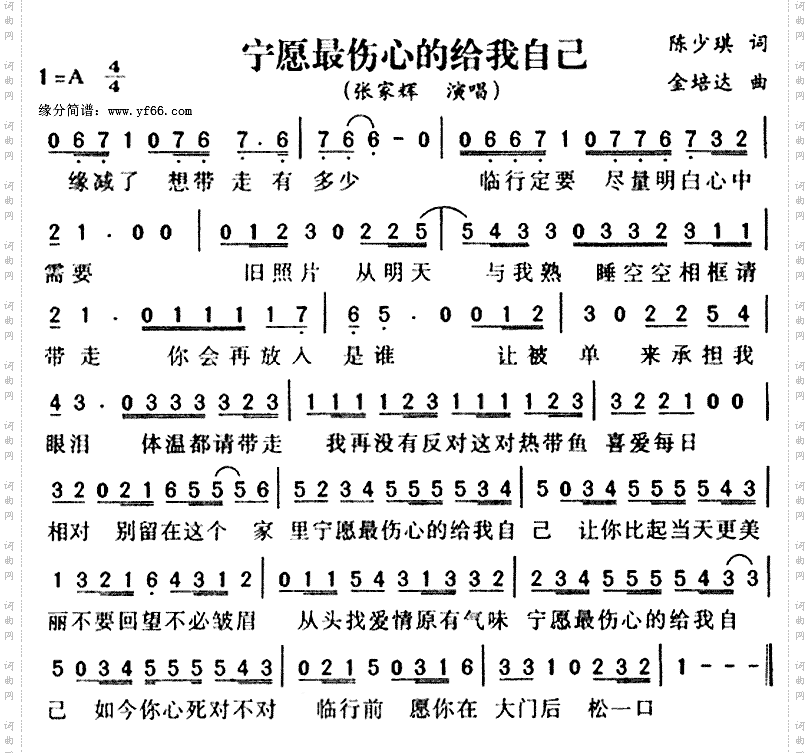 宁愿最伤心的给我自己
陈少琪 词
1=A 4/4
(张家辉 演唱)
金培达 曲
缘分简谱：www.yf66.com
0 6 7 1 0 7 6 7 · 6 | 7 6 6 - 0 | 0 6 6 7 1 0 7 7 6 7 3 2 |
缘减了 想带走有多少 临行定要 尽量明白心中
2 1 · 0 0 | 0 1 2 3 0 2 2 5 | 5 4 3 3 0 3 3 2 3 1 1 |
需要 旧照片 从明天 与我熟 睡空空相框请
2 1 · 0 1 1 1 1 1 7 | 6 5 · 0 0 1 2 | 3 0 2 2 5 4 |
带走 你会再放入是谁 让被单 来承担我
4 3 · 0 3 3 3 3 2 3 | 1 1 1 1 2 3 1 1 1 1 2 3 | 3 2 2 1 0 0 |
眼泪 体温都请带走 我再没有反对这对热带鱼 喜爱每日
3 2 0 2 1 6 5 5 5 6 | 5 2 3 4 5 5 5 5 3 4 | 5 0 3 4 5 5 5 5 4 3 |
相对 别留在这个 家里宁愿最伤心的给我自己 让你比起当天更美
1 3 2 1 6 4 3 1 2 | 0 1 1 5 4 3 1 3 3 2 | 2 3 4 5 5 5 5 4 3 3 |
丽不要回望不必皱眉 从头找爱情原有气味 宁愿最伤心的给我自
5 0 3 4 5 5 5 5 4 3 | 0 2 1 5 0 3 1 6 | 3 3 1 0 2 3 2 | 1 - - - ‖
己 如今你心死对不对 临行前 愿你在 大门后 松一口
词曲网
词曲网
词曲网
词曲网
词曲网
词曲网
词曲网
词曲网
词曲网
词曲网
词曲网
词曲网